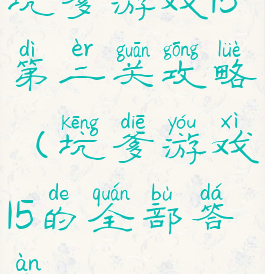 坑爹游戏15
dì èr guān gōng lüè
第二关攻略
kēng diē yóu xì
(坑爹游戏
de quán bù dá
15的全部答
àn